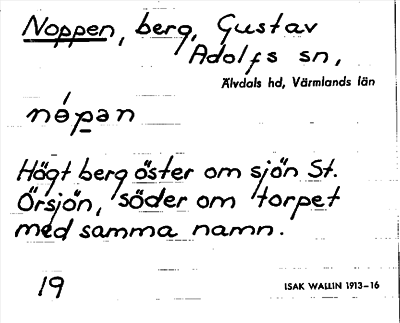 Noppen, berg, Gustav
Adolfs sn,
Älvdals hd, Värmlands län
nópan
Högt berg öster om sjön St.
Örsjön, söder om torpet
med samma namn.
19
ISAK WALLIN 1913-16